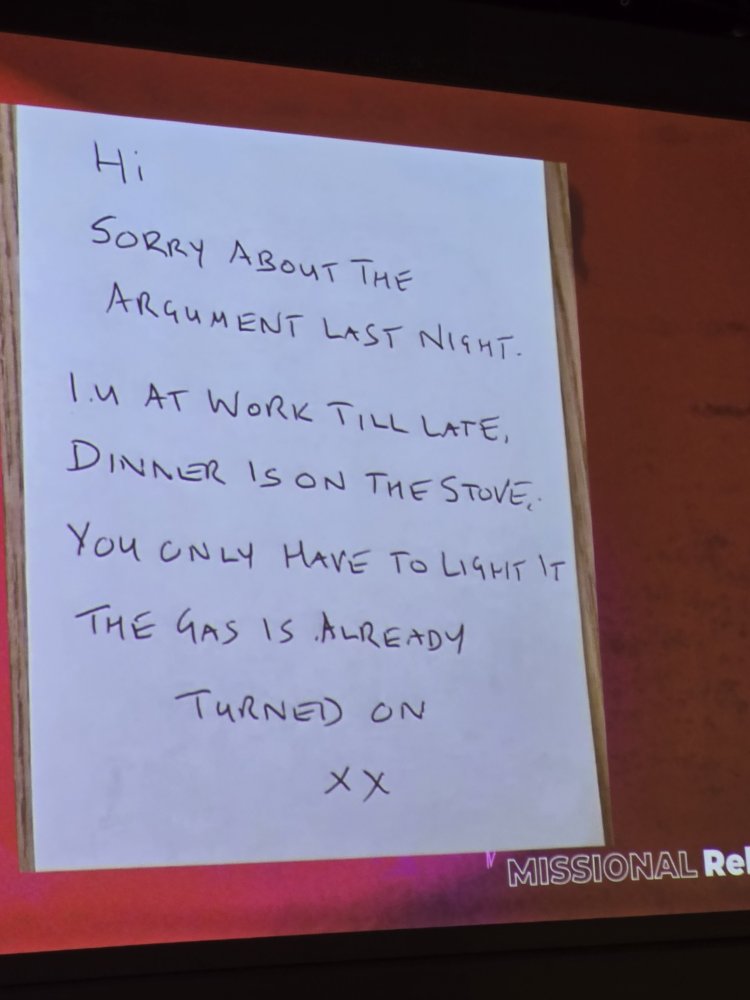 Hi
SORRY ABOUT THE
ARGUMENT LAST NIGHT.
I.M AT WORK TILL LATE,
DINNER IS ON THE STOVE,.
YOU ONLY HAVE TO LIGHT IT
THE GAS IS ALREADY
TURNED ON
XX
MISSIONAL Rel